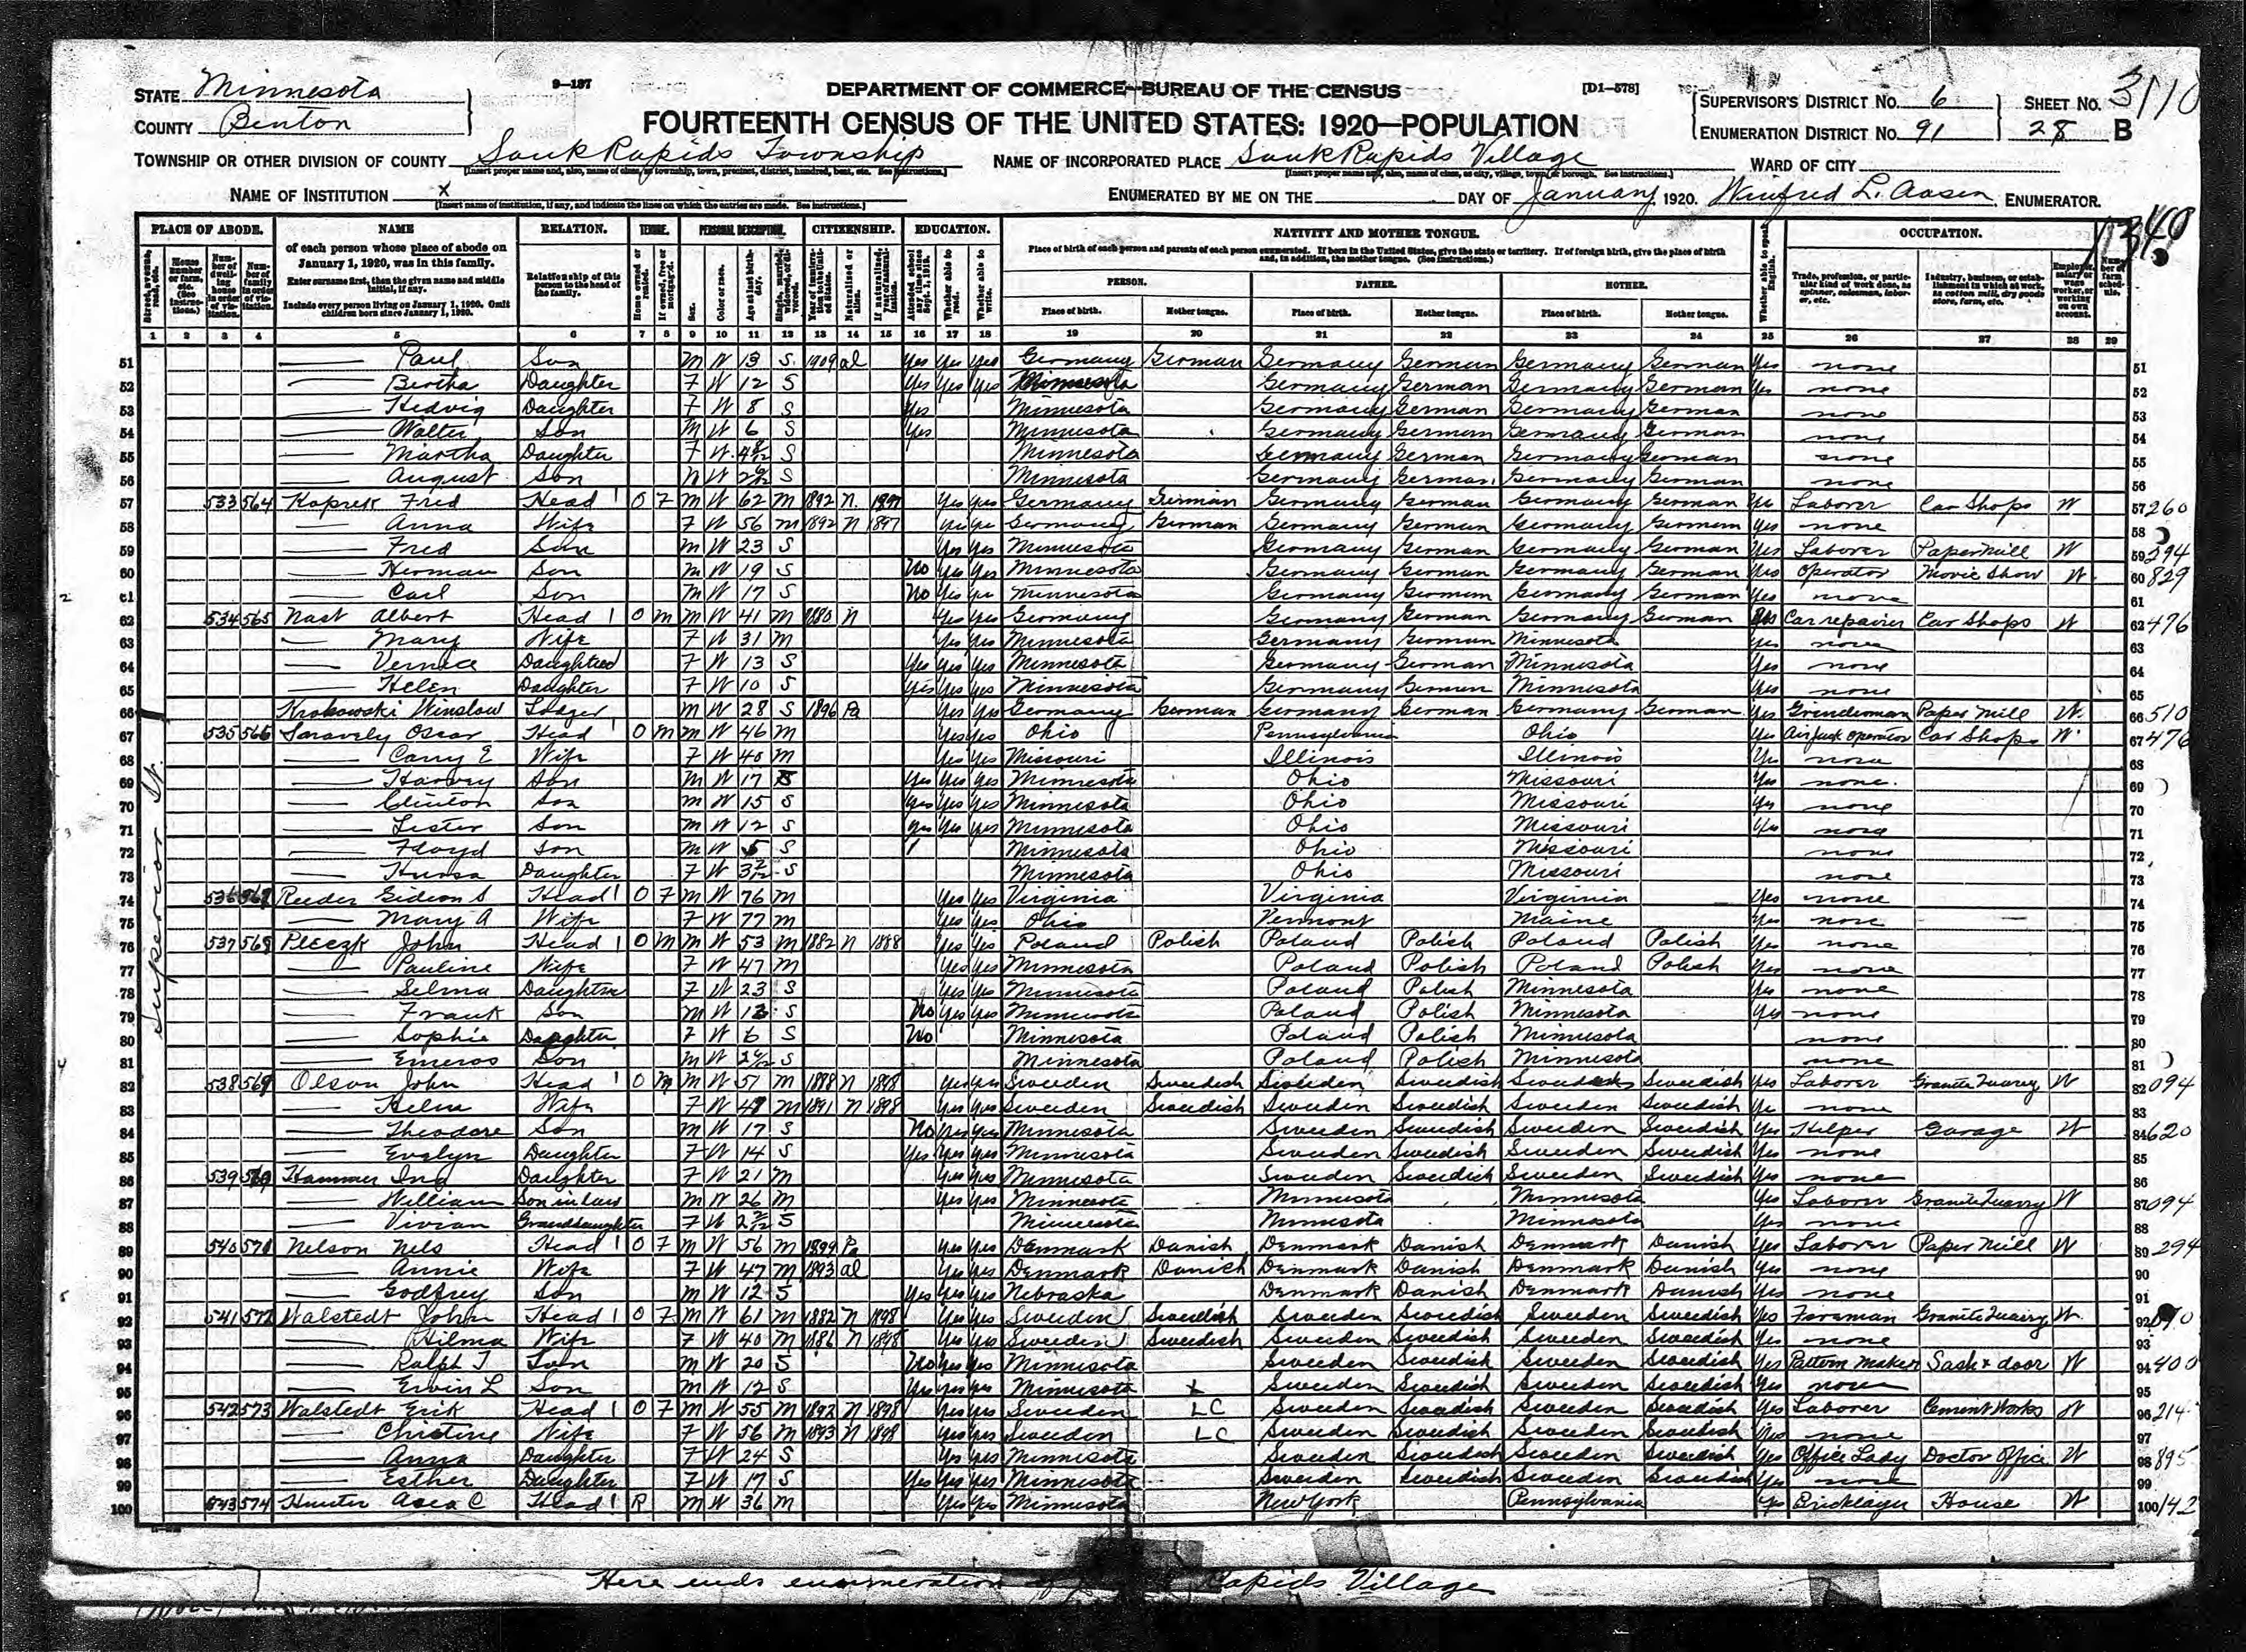 STATE Minnesota
COUNTY Benton
9—137
DEPARTMENT OF COMMERCE—BUREAU OF THE CENSUS
[D1—578]
FOURTEENTH CENSUS OF THE UNITED STATES: 1920—POPULATION
SUPERVISOR'S DISTRICT NO. 6
ENUMERATION DISTRICT NO. 91
SHEET NO. 28 B
TOWNSHIP OR OTHER DIVISION OF COUNTY Sauk Rapids Township
NAME OF INCORPORATED PLACE Sauk Rapids Village
WARD OF CITY
NAME OF INSTITUTION X
[Insert name of institution, if any, and indicate the lines on which the entries are made. See instructions.]
ENUMERATED BY ME ON THE DAY OF January, 1920. Winifred L. Aasen, ENUMERATOR.
PLACE OF ABODE. NAME RELATION. TENURE. PERSONAL DESCRIPTION. CITIZENSHIP. EDUCATION. NATIVITY AND MOTHER TONGUE. OCCUPATION.
of each person whose place of abode on January 1, 1920, was in this family.
Enter surname first, then the given name and middle initial, if any.
Include every person living on January 1, 1920. Omit children born since January 1, 1920.
Relationship of this person to the head of the family.
PERSON. FATHER. MOTHER.
Place of birth. Mother tongue. Place of birth. Mother tongue. Place of birth. Mother tongue.
1 2 3 4 5 6 7 8 9 10 11 12 13 14 15 16 17 18 19 20 21 22 23 24 25 26 27 28 29
51 Paul Son M W 13 S 1909 al Yes Yes Yes Germany German Germany German Germany German Yes none 51
52 Bertha Daughter F W 12 S Yes Yes Yes Minnesota Germany German Germany German Yes none 52
53 Hedvig Daughter F W 8 S Yes Minnesota Germany German Germany German none 53
54 Walter Son M W 6 S Yes Minnesota Germany German Germany German none 54
55 Martha Daughter F W S Minnesota Germany German Germany German none 55
56 August Son M W S Minnesota Germany German Germany German none 56
57 533 564 Fred Head 1 O F M W 62 M 1892 n 1897 Yes Yes Germany German Germany German Germany German Yes Laborer Car Shops W 57 260
58 Anna Wife F W 56 M 1892 n 1897 Yes Yes Germany German Germany German Germany German Yes none 58
59 Fred Son M W 23 S Yes Yes Minnesota Germany German Germany German Yes Laborer Paper Mill W 59
60 Herman Son M W 19 S No Yes Yes Minnesota Germany German Germany German Yes Operator Movie Show W 60 829
61 Carl Son M W 17 S No Yes Yes Minnesota Germany German Germany German Yes none 61
62 534 565 Nast Albert Head 1 O M M W 41 M 1880 n Yes Yes Germany Germany German Germany German Yes Car repairer Car Shops W 62 476
63 Mary Wife F W 31 M Yes Yes Minnesota Germany German Minnesota Yes none 63
64 Vernice Daughter F W 13 S Yes Yes Yes Minnesota Germany German Minnesota Yes none 64
65 Helen Daughter F W 10 S Yes Yes Yes Minnesota Germany German Minnesota Yes none 65
66 Krokowski Winslow Lodger M W 28 S 1896 Pa Yes Yes Germany German Germany German Germany German Yes Grinderman Paper Mill W 66 510
67 535 566 Snavely Oscar Head 1 O M M W 46 M Yes Yes Ohio Pennsylvania Ohio Yes Air jack operator Car Shops W 67 476
68 Carry E Wife F W 40 M Yes Yes Missouri Illinois Illinois Yes none 68
69 Harvey Son M W 17 S Yes Yes Yes Minnesota Ohio Missouri Yes none 69
70 Clinton Son M W 15 S Yes Yes Yes Minnesota Ohio Missouri Yes none 70
71 Lester Son M W 12 S Yes Yes Yes Minnesota Ohio Missouri Yes none 71
72 Floyd Son M W 5 S Minnesota Ohio Missouri none 72
73 Daughter F W S Minnesota Ohio Missouri none 73
74 536 567 Reeder Gideon S Head 1 O F M W 76 M Yes Yes Virginia Virginia Virginia Yes none 74
75 Mary A Wife F W 77 M Yes Yes Ohio Vermont Maine Yes none 75
76 537 568 John Head 1 O M M W 53 M 1882 n 1888 Yes Yes Poland Polish Poland Polish Poland Polish Yes none 76
77 Pauline Wife F W 47 M Yes Yes Minnesota Poland Polish Poland Polish Yes none 77
78 Selma Daughter F W 23 S Yes Yes Minnesota Poland Polish Minnesota Yes none 78
79 Frank Son M W S No Yes Yes Minnesota Poland Polish Minnesota Yes none 79
80 Sophie Daughter F W 6 S No Minnesota Poland Polish Minnesota none 80
81 Son M W S Minnesota Poland Polish Minnesota none 81
82 538 569 Olson John Head 1 O M M W 57 M 1888 n 1898 Yes Yes Sweden Swedish Sweden Swedish Sweden Swedish Yes Laborer Granite Quarry W 82 094
83 Wife F W M 1891 n 1898 Yes Yes Sweden Swedish Sweden Swedish Sweden Swedish Yes none 83
84 Theodore Son M W 17 S No Yes Yes Minnesota Sweden Swedish Sweden Swedish Yes Helper Garage W 84 620
85 Evelyn Daughter F W 14 S Yes Yes Yes Minnesota Sweden Swedish Sweden Swedish Yes none 85
86 539 Hammer Ina Daughter F W 21 M Yes Yes Minnesota Sweden Swedish Sweden Swedish Yes none 86
87 William Son in law M W 26 M Yes Yes Minnesota Minnesota Minnesota Yes Laborer Granite Quarry W 87 094
88 Vivian Granddaughter F W S Minnesota Minnesota Minnesota Yes none 88
89 540 571 Nelson Nels Head 1 O F M W 56 M 1899 Pa Yes Yes Denmark Danish Denmark Danish Denmark Danish Yes Laborer Paper Mill W 89 294
90 Annie Wife F W 47 M 1893 al Yes Yes Denmark Danish Denmark Danish Denmark Danish Yes none 90
91 Godfrey Son M W 12 S Yes Yes Yes Nebraska Denmark Danish Denmark Danish Yes none 91
92 541 572 Walstedt John Head 1 O F M W 61 M 1882 n 1898 Yes Yes Sweden Swedish Sweden Swedish Sweden Swedish Yes Foreman Granite Quarry W 92
93 Hilma Wife F W 40 M 1886 n 1898 Yes Yes Sweden Swedish Sweden Swedish Sweden Swedish Yes none 93
94 Ralph T Son M W 20 S No Yes Yes Minnesota Sweden Swedish Sweden Swedish Yes Pattern maker Sash & door W 94 400
95 Ervin L Son M W 12 S Yes Yes Yes Minnesota X Sweden Swedish Sweden Swedish Yes none 95
96 542 573 Walstedt Erik Head 1 O F M W 55 M 1892 n 1898 Yes Yes Sweden LC Sweden Swedish Sweden Swedish Yes Laborer Cement Works W 96 214
97 Christine Wife F W 56 M 1893 n 1898 Yes Yes Sweden LC Sweden Swedish Sweden Swedish Yes none 97
98 Anna Daughter F W 24 S Yes Yes Minnesota Sweden Swedish Sweden Swedish Yes Office Lady Doctor Office W 98 895
99 Esther Daughter F W 17 S Yes Yes Yes Minnesota Sweden Swedish Sweden Swedish Yes none 99
100 543 574 Hunter Asea C Head 1 R M W 36 M Yes Yes Minnesota New York Pennsylvania Yes Bricklayer House W 100 142
Superior St.
Here ends enumeration of Rapids Village